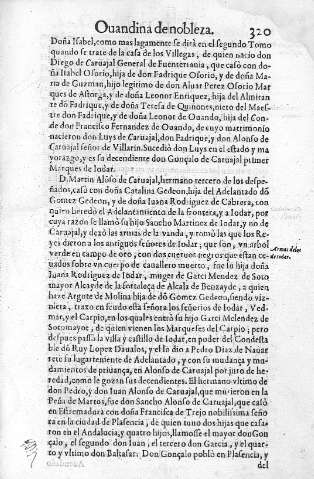 Ouandina de nobleza. 320
Doña Isabel, como mas lagamente se dirà en el segundo Tomo
quando se trate de la casa de los Villegas, de quien nacio don
Diego de Caruajal General de Fuenterrauia, que casò con do-
ña Isabel Osorio, hija de don Fadrique Osorio, y de doña Ma-
ria de Guzman, hijo legitimo de don Aluar Perez Osorio Mar
ques de Astorga, y de doña Leonor Enriquez, hija del Almiran
te dō Fadrique, y de doña Teresa de Quiñones, nieto del Maes-
tre don Fadrique, y de doña Leonor de Ouando, hija del Con-
de don Francisco Fernandez de Ouando, de cuyo matrimonio
nacieron don Luys de Caruajal, don Fadrique, y don Alonso de
Caruajal señor de Villarin. Sucediò don Luys en el estado y ma
yorazgo, y es su decendiente don Gonçalo de Caruajal primer
Marques de Iodar.
D. Martin Alōso de Caruajal, hermano tercero de los despe-
ñados, casò con doña Catalina Gedeon, hija del Adelantado dō
Gomez Gedeon, y de doña Iuana Rodriguez de Cabrera, con
quien heredò el Adelantamiento de la frontera, y a Iodar, por
cuya razon se llamò su hijo Sancho Martinez de Iodar, y no de
Caruajal, y dexò las armas de la vanda, y tomò las que los Re-
yes dieron a los antiguos señores de Iodar, que son, vn arbol
verde en campo de oro, con dos cueruos negros que estan ce-
uados sobre vn cuerpo de cauallero muerto, fue su hija doña
Armas de los de Iodar.
Iuana Rodriguez de Iodar, muger de Garci Mendez de Soto
mayor Alcayde de la fortaleça de Alcala de Benzayde, a quien
haze Argote de Molina hija de dō Gomez Gedeon, siendo viz-
nieta, traxo en feudo esta señora los señorios de Iodar, y Ved-
mar, y el Carpio, en los quales entrò su hijo Garci Melendez de
Sotomayor, de quien vienen los Marqueses del Carpio; pero
despues passò la villa y castillo de Iodar, en poder del Condesta
ble dō Ruy Lopez Daualos, y el la dio a Pedro Diaz de Naxar
rete su lugarteniente de Adelantado, y con su mudança y mu-
damientos de priuança, en Alonso de Caruajal por juro de he-
redad, como le gozan sus decendientes. El hermano vltimo de
don Pedro, y don Iuan Alonso de Caruajal, que murieron en la
Peña de Martos, fue don Sancho Alonso de Caruajal, que casò
en Estremadura con doña Francisca de Trejo nobilissima seño
ra en la ciudad de Plasencia, de quien tuuo dos hijas que casa-
ron en el Andalucia, y quatro hijos, llamose el mayor don Gon-
çalo, el segundo don Iuan, el tercero don Garcia, y el quar-
to y vltimo don Baltasar. Don Gonçalo poblò en Plasencia, y
del